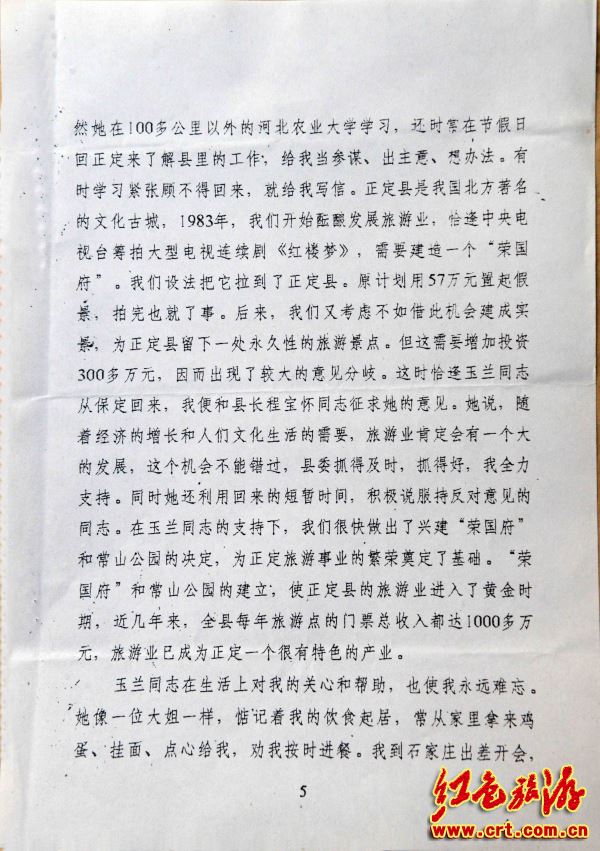 然她在100多公里以外的河北农业大学学习，还时常在节假日
回正定来了解县里的工作，给我当参谋、出主意、想办法。有
时学习紧张顾不得回来，就给我写信。正定县是我国北方著名
的文化古城，1983年，我们开始酝酿发展旅游业，恰逢中央电
视台筹拍大型电视连续剧《红楼梦》，需要建造一个“荣国
府”。我们设法把它拉到了正定县。原计划用57万元置起假
景，拍完也就了事。后来，我们又考虑不如借此机会建成实
景，为正定县留下一处永久性的旅游景点。但这需要增加投资
300多万元，因而出现了较大的意见分歧。这时恰逢玉兰同志
从保定回来，我便和县长程宝怀同志征求她的意见。她说，随
着经济的增长和人们文化生活的需要，旅游业肯定会有一个大
的发展，这个机会不能错过，县委抓得及时，抓得好，我全力
支持。同时她还利用回来的短暂时间，积极说服持反对意见的
同志。在玉兰同志的支持下，我们很快做出了兴建“荣国府”
和常山公园的决定，为正定旅游事业的繁荣奠定了基础。“荣
国府”和常山公园的建立，使正定县的旅游业进入了黄金时
期，近几年来，全县每年旅游点的门票总收入都达1000多万
元，旅游业已成为正定一个很有特色的产业。
玉兰同志在生活上对我的关心和帮助，也使我永远难忘。
她像一位大姐一样，惦记着我的饮食起居，常从家里拿来鸡
蛋、挂面、点心给我，劝我按时进餐。我到石家庄出差开会，
5
红色旅游
www.crt.com.cn